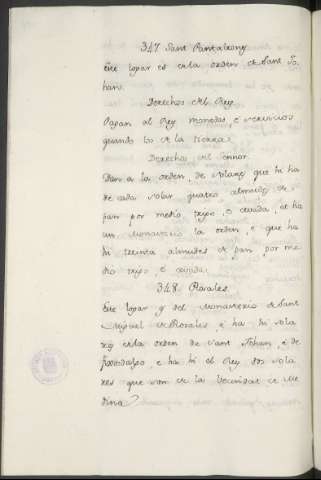 347 Sant Pantaleone
Este logar es de la orden de Sant Jo
han.
Derechos del Rey
Pagan al Rey monedas, e servicios
quando los de la tierra.
Derechos del Sennor
Dan a la orden, de solarg que hi ha
de cada solar quatro almudes de
pan por medio, trigo, o cevada, et ha
un Monasterio la orden, e que ha
hi treinta almudes de pan por me
dio trigo, o cevada.
348. Rosales
Este logar es del Monasterio de Sant
Miguel de Rosales, e ha hi sola
res de la orden de Sant Johan, e de
fijosdalgo, e ha hi el Rey dos sola
res que son de la Vecindat de Me
dina